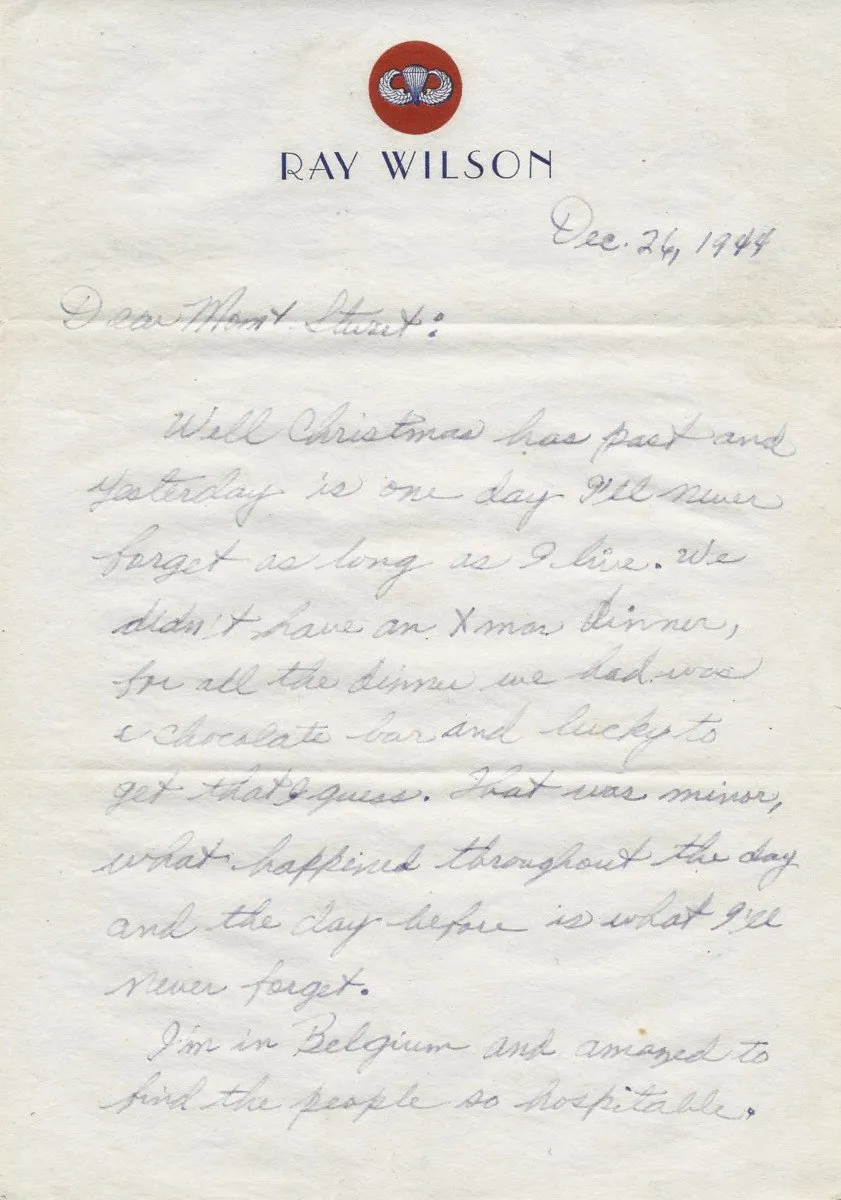 RAY WILSON
Dec. 26, 1944
Dear Mom + Sturet:
Well Christmas has past and
yesterday is one day I'll never
forget as long as I live. We
didn't have an Xmas dinner,
for all the dinner we had was
a chocolate bar and lucky to
get that I guess. That was minor,
what happened throughout the day
and the day before is what I'll
never forget.
I'm in Belgium and amazed to
find the people so hospitable.